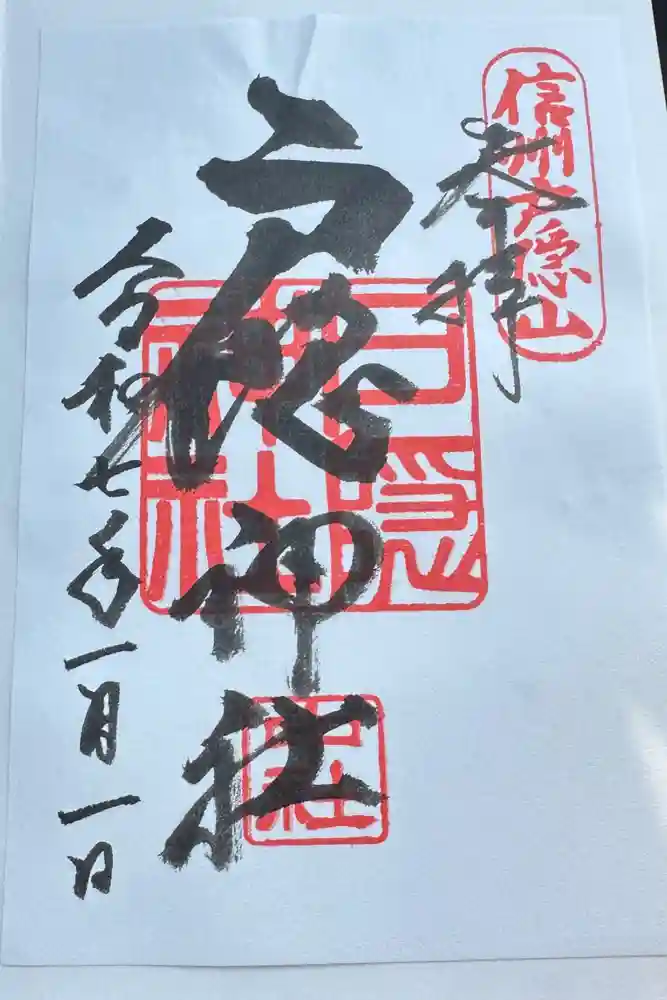 信州戸隠山
奉拝
戸隠神社
戸隠
神社
中社
令和七年一月一日